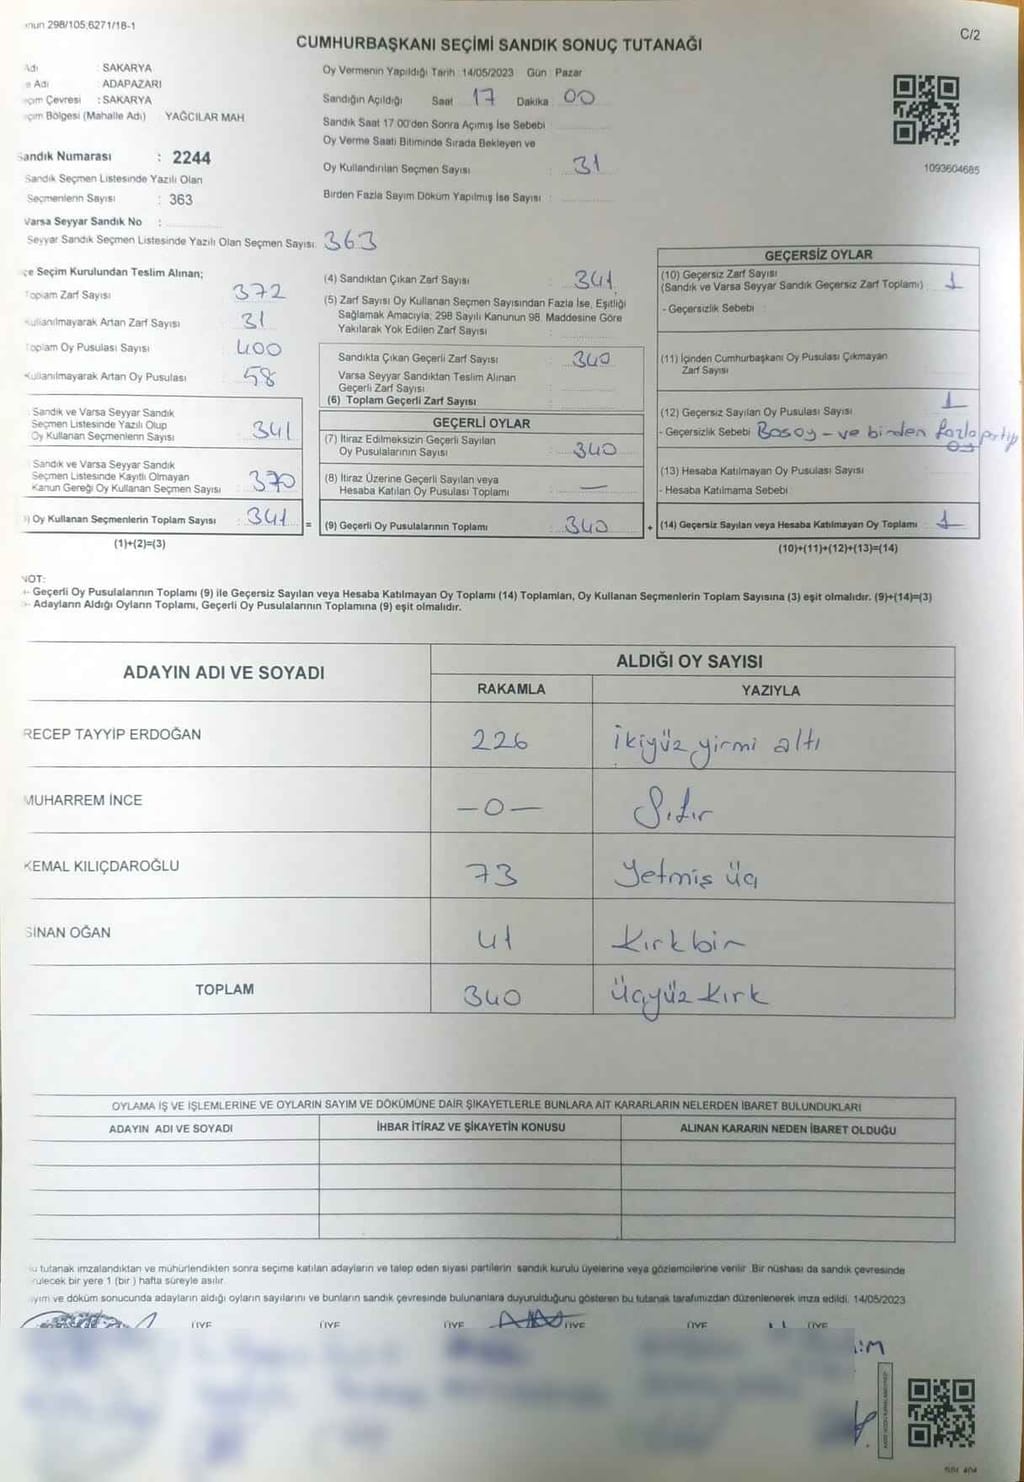 nun 298/105,6271/18-1
C/2
CUMHURBAŞKANI SEÇİMİ SANDIK SONUÇ TUTANAĞI
Adı : SAKARYA
e Adı ADAPAZARI
çim Çevresi : SAKARYA
çim Bölgesi (Mahalle Adı) YAĞCILAR MAH
Sandık Numarası : 2244
Sandık Seçmen Listesinde Yazılı Olan
Seçmenlerin Sayısı : 363
Varsa Seyyar Sandık No :
Seyyar Sandık Seçmen Listesinde Yazılı Olan Seçmen Sayısı: 363
Oy Vermenin Yapıldığı Tarih :14/05/2023 Gün : Pazar
Sandığın Açıldığı Saat 17 Dakika 00
Sandık Saat 17:00'den Sonra Açımış İse Sebebi
Oy Verme Saati Bitiminde Sırada Bekleyen ve
Oy Kullandırılan Seçmen Sayısı : 31
Birden Fazla Sayım Döküm Yapılmış İse Sayısı :
1093604685
çe Seçim Kurulundan Teslim Alınan;
Toplam Zarf Sayısı 372
Kullanılmayarak Artan Zarf Sayısı 31
Toplam Oy Pusulası Sayısı 400
Kullanılmayarak Artan Oy Pusulası 58
Sandık ve Varsa Seyyar Sandık
Seçmen Listesinde Yazılı Olup
Oy Kullanan Seçmenlerin Sayısı 341
Sandık ve Varsa Seyyar Sandık
Seçmen Listesinde Kayıtlı Olmayan
Kanun Gereği Oy Kullanan Seçmen Sayısı 370
) Oy Kullanan Seçmenlerin Toplam Sayısı : 341 =
(1)+(2)=(3)
(4) Sandıktan Çıkan Zarf Sayısı : 341
(5) Zarf Sayısı Oy Kullanan Seçmen Sayısından Fazla İse, Eşitliği
Sağlamak Amacıyla; 298 Sayılı Kanunun 98. Maddesine Göre
Yakılarak Yok Edilen Zarf Sayısı :
Sandıkta Çıkan Geçerli Zarf Sayısı : 340
Varsa Seyyar Sandıktan Teslim Alınan
Geçerli Zarf Sayısı
(6) Toplam Geçerli Zarf Sayısı
GEÇERLİ OYLAR
(7) İtiraz Edilmeksizin Geçerli Sayılan
Oy Pusulalarının Sayısı : 340
(8) İtiraz Üzerine Geçerli Sayılan veya
Hesaba Katılan Oy Pusulası Toplamı : —
(9) Geçerli Oy Pusulalarının Toplamı : 340 +
GEÇERSİZ OYLAR
(10) Geçersiz Zarf Sayısı
(Sandık ve Varsa Seyyar Sandık Geçersiz Zarf Toplamı) : 1
- Geçersizlik Sebebi :
(11) İçinden Cumhurbaşkanı Oy Pusulası Çıkmayan
Zarf Sayısı
(12) Geçersiz Sayılan Oy Pusulası Sayısı : 1
- Geçersizlik Sebebi Basoy - ve birden fazla partiy
oy
(13) Hesaba Katılmayan Oy Pusulası Sayısı
- Hesaba Katılmama Sebebi
(14) Geçersiz Sayılan veya Hesaba Katılmayan Oy Toplamı : 1
(10)+(11)+(12)+(13)=(14)
NOT:
- Geçerli Oy Pusulalarının Toplamı (9) ile Geçersiz Sayılan veya Hesaba Katılmayan Oy Toplamı (14) Toplamları, Oy Kullanan Seçmenlerin Toplam Sayısına (3) eşit olmalıdır. (9)+(14)=(3)
- Adayların Aldığı Oyların Toplamı, Geçerli Oy Pusulalarının Toplamına (9) eşit olmalıdır.
ADAYIN ADI VE SOYADI ALDIĞI OY SAYISI
RAKAMLA YAZIYLA
RECEP TAYYİP ERDOĞAN 226 İkiyüz yirmi altı
MUHARREM İNCE —0— Sıfır
KEMAL KILIÇDAROĞLU 73 Yetmiş üç
SİNAN OĞAN 41 Kırkbir
TOPLAM 340 Üçyüz Kırk
OYLAMA İŞ VE İŞLEMLERİNE VE OYLARIN SAYIM VE DÖKÜMÜNE DAİR ŞİKAYETLERLE BUNLARA AİT KARARLARIN NELERDEN İBARET BULUNDUKLARI
ADAYIN ADI VE SOYADI İHBAR İTİRAZ VE ŞİKAYETİN KONUSU ALINAN KARARIN NEDEN İBARET OLDUĞU
u tutanak imzalandıktan ve mühürlendikten sonra seçime katılan adayların ve talep eden siyasi partilerin sandık kurulu üyelerine veya gözlemcilerine verilir. Bir nüshası da sandık çevresinde
rülecek bir yere 1 (bir ) hafta süreyle asılır.
ayım ve döküm sonucunda adayların aldığı oyların sayılarını ve bunların sandık çevresinde bulunanlara duyurulduğunu gösteren bu tutanak tarafımızdan düzenlenerek imza edildi. 14/05/2023
ÜYE ÜYE ÜYE ÜYE ÜYE ÜYE